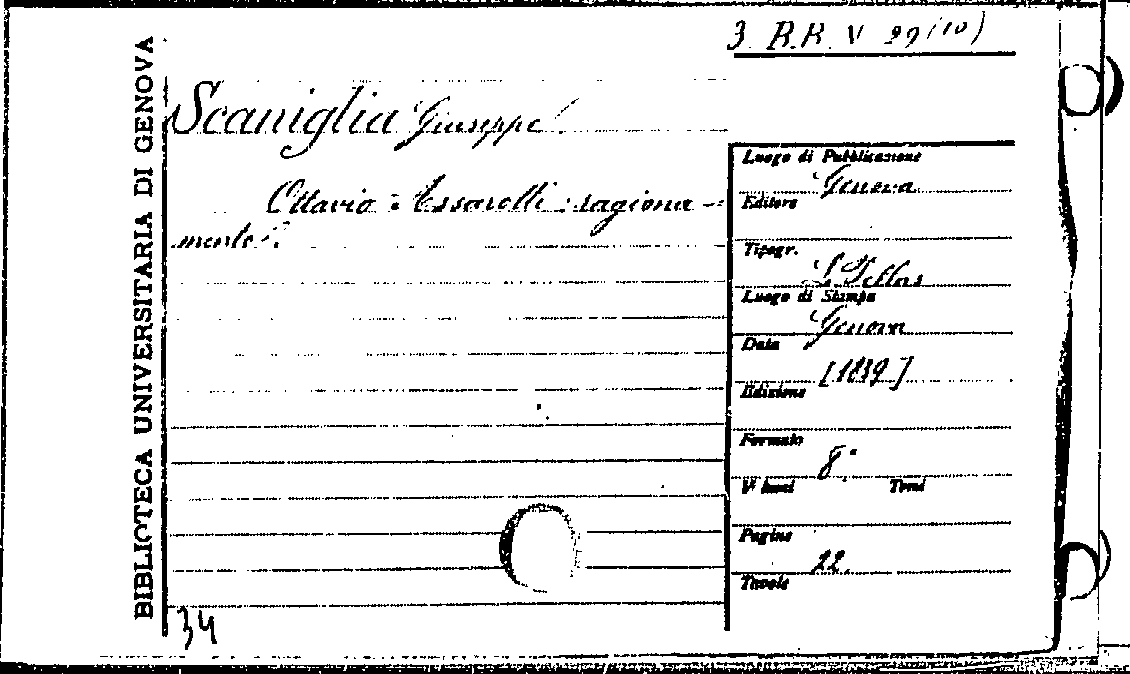 3. B.B. V 29 (10)
BIBLIOTECA UNIVERSITARIA DI GENOVA
Scaniglia Giuseppe
Ottavio Assarotti : ragiona-
mento.
Luogo di Pubblicazione
Genova
Editore
Tipogr.
Luogo di Stampa
Genova
Data
[1839]
Edizione
Formato
8°
Volumi Tomi
Pagine
22.
Tavole
34